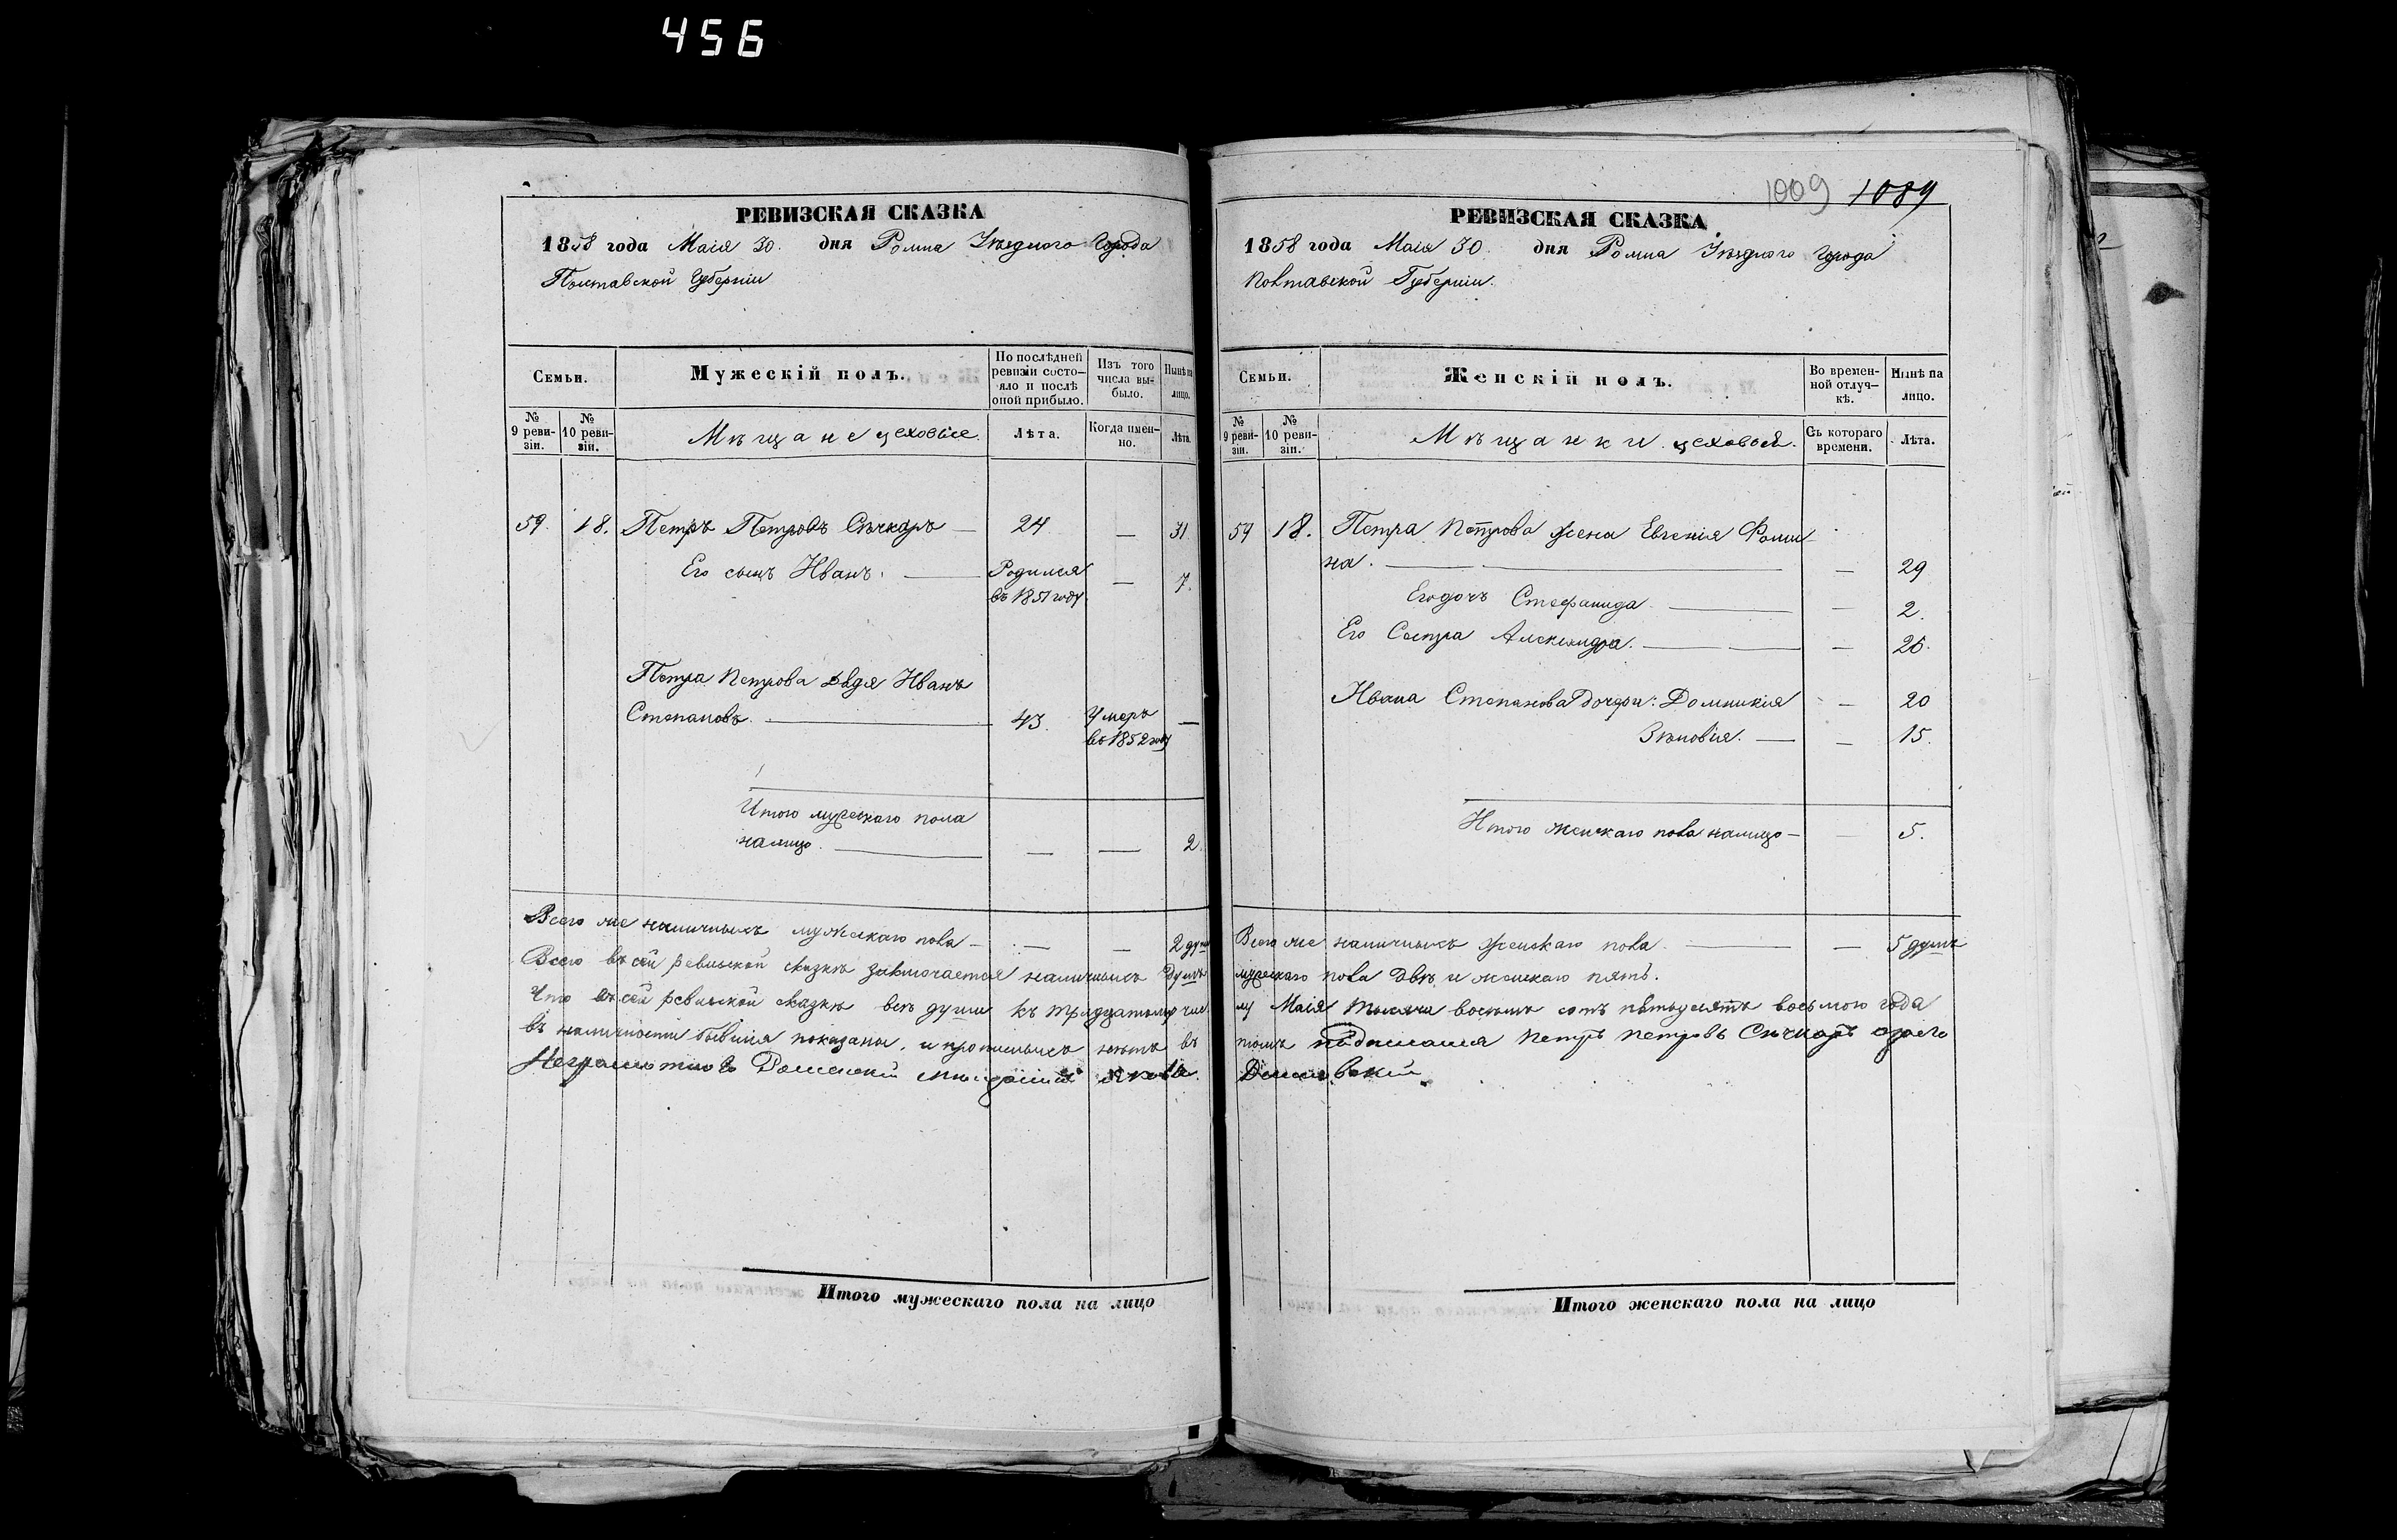 456
РЕВИЗСКАЯ СКАЗКА
1858 года Маія 30. дня Ромна Уѣзднаго Города
Полтавской Губерніи
Семьи.
Мужескій полъ.
По послѣдней ревизіи состо-яло и послѣ оной прибыло.
Изъ того числа вы-было.
Нынѣ на лицо.
№ 9 реви-зіи.
№ 10 реви-зіи.
Мѣщане цеховые.
Лѣта.
Когда имен-но.
Лѣта.
59. 18. Петръ Петровъ Сѣчкарь — 24 — 31.
Его сынъ Иванъ. — Родился — 7.
въ 1851 году.
Петра Петрова дядя Иванъ
Степановъ. — 43. Умеръ —
въ 1852 году
Итого мужескаго пола
налицо. — — — 2.
Всего же наличныхъ мужескаго пола — — — 2 душ
Всего въ сей ревизской сказкѣ заключается наличныхъ душъ
Что въ сей ревизской сказкѣ всѣ души къ тридцатому чис
въ наличности бывшія показаны, и прописныхъ нѣтъ въ
Итого мужескаго пола на лицо
1009 1089
РЕВИЗСКАЯ СКАЗКА
1858 года Маія 30. дня Ромна Уѣзднаго Города
Полтавской Губерніи.
Семьи.
Женскій полъ.
Во времен-ной отлуч-кѣ.
Нынѣ на лицо.
№ 9 реви-зіи.
№ 10 реви-зіи.
Мѣщанки цеховыя.
Съ котораго времени.
Лѣта.
59 18. Петра Петрова жена Евгенія Фоми-
на. — — 29
Его дочь Стефанида — — 2.
Его Сестра Александра. — — 26.
Ивана Степанова дочери: Домникія — 20
Зѣновія. — — 15.
Итого женскаго пола налицо — — 5.
Всего же наличныхъ женскаго пола. — — 5 душъ
мужескаго пола двѣ и женскаго пять.
лу Маія тысяча восемь сотъ пятьдесятъ восьмого года
томъ подписался Петръ Петровъ Сѣчкарь
Итого женскаго пола на лицо